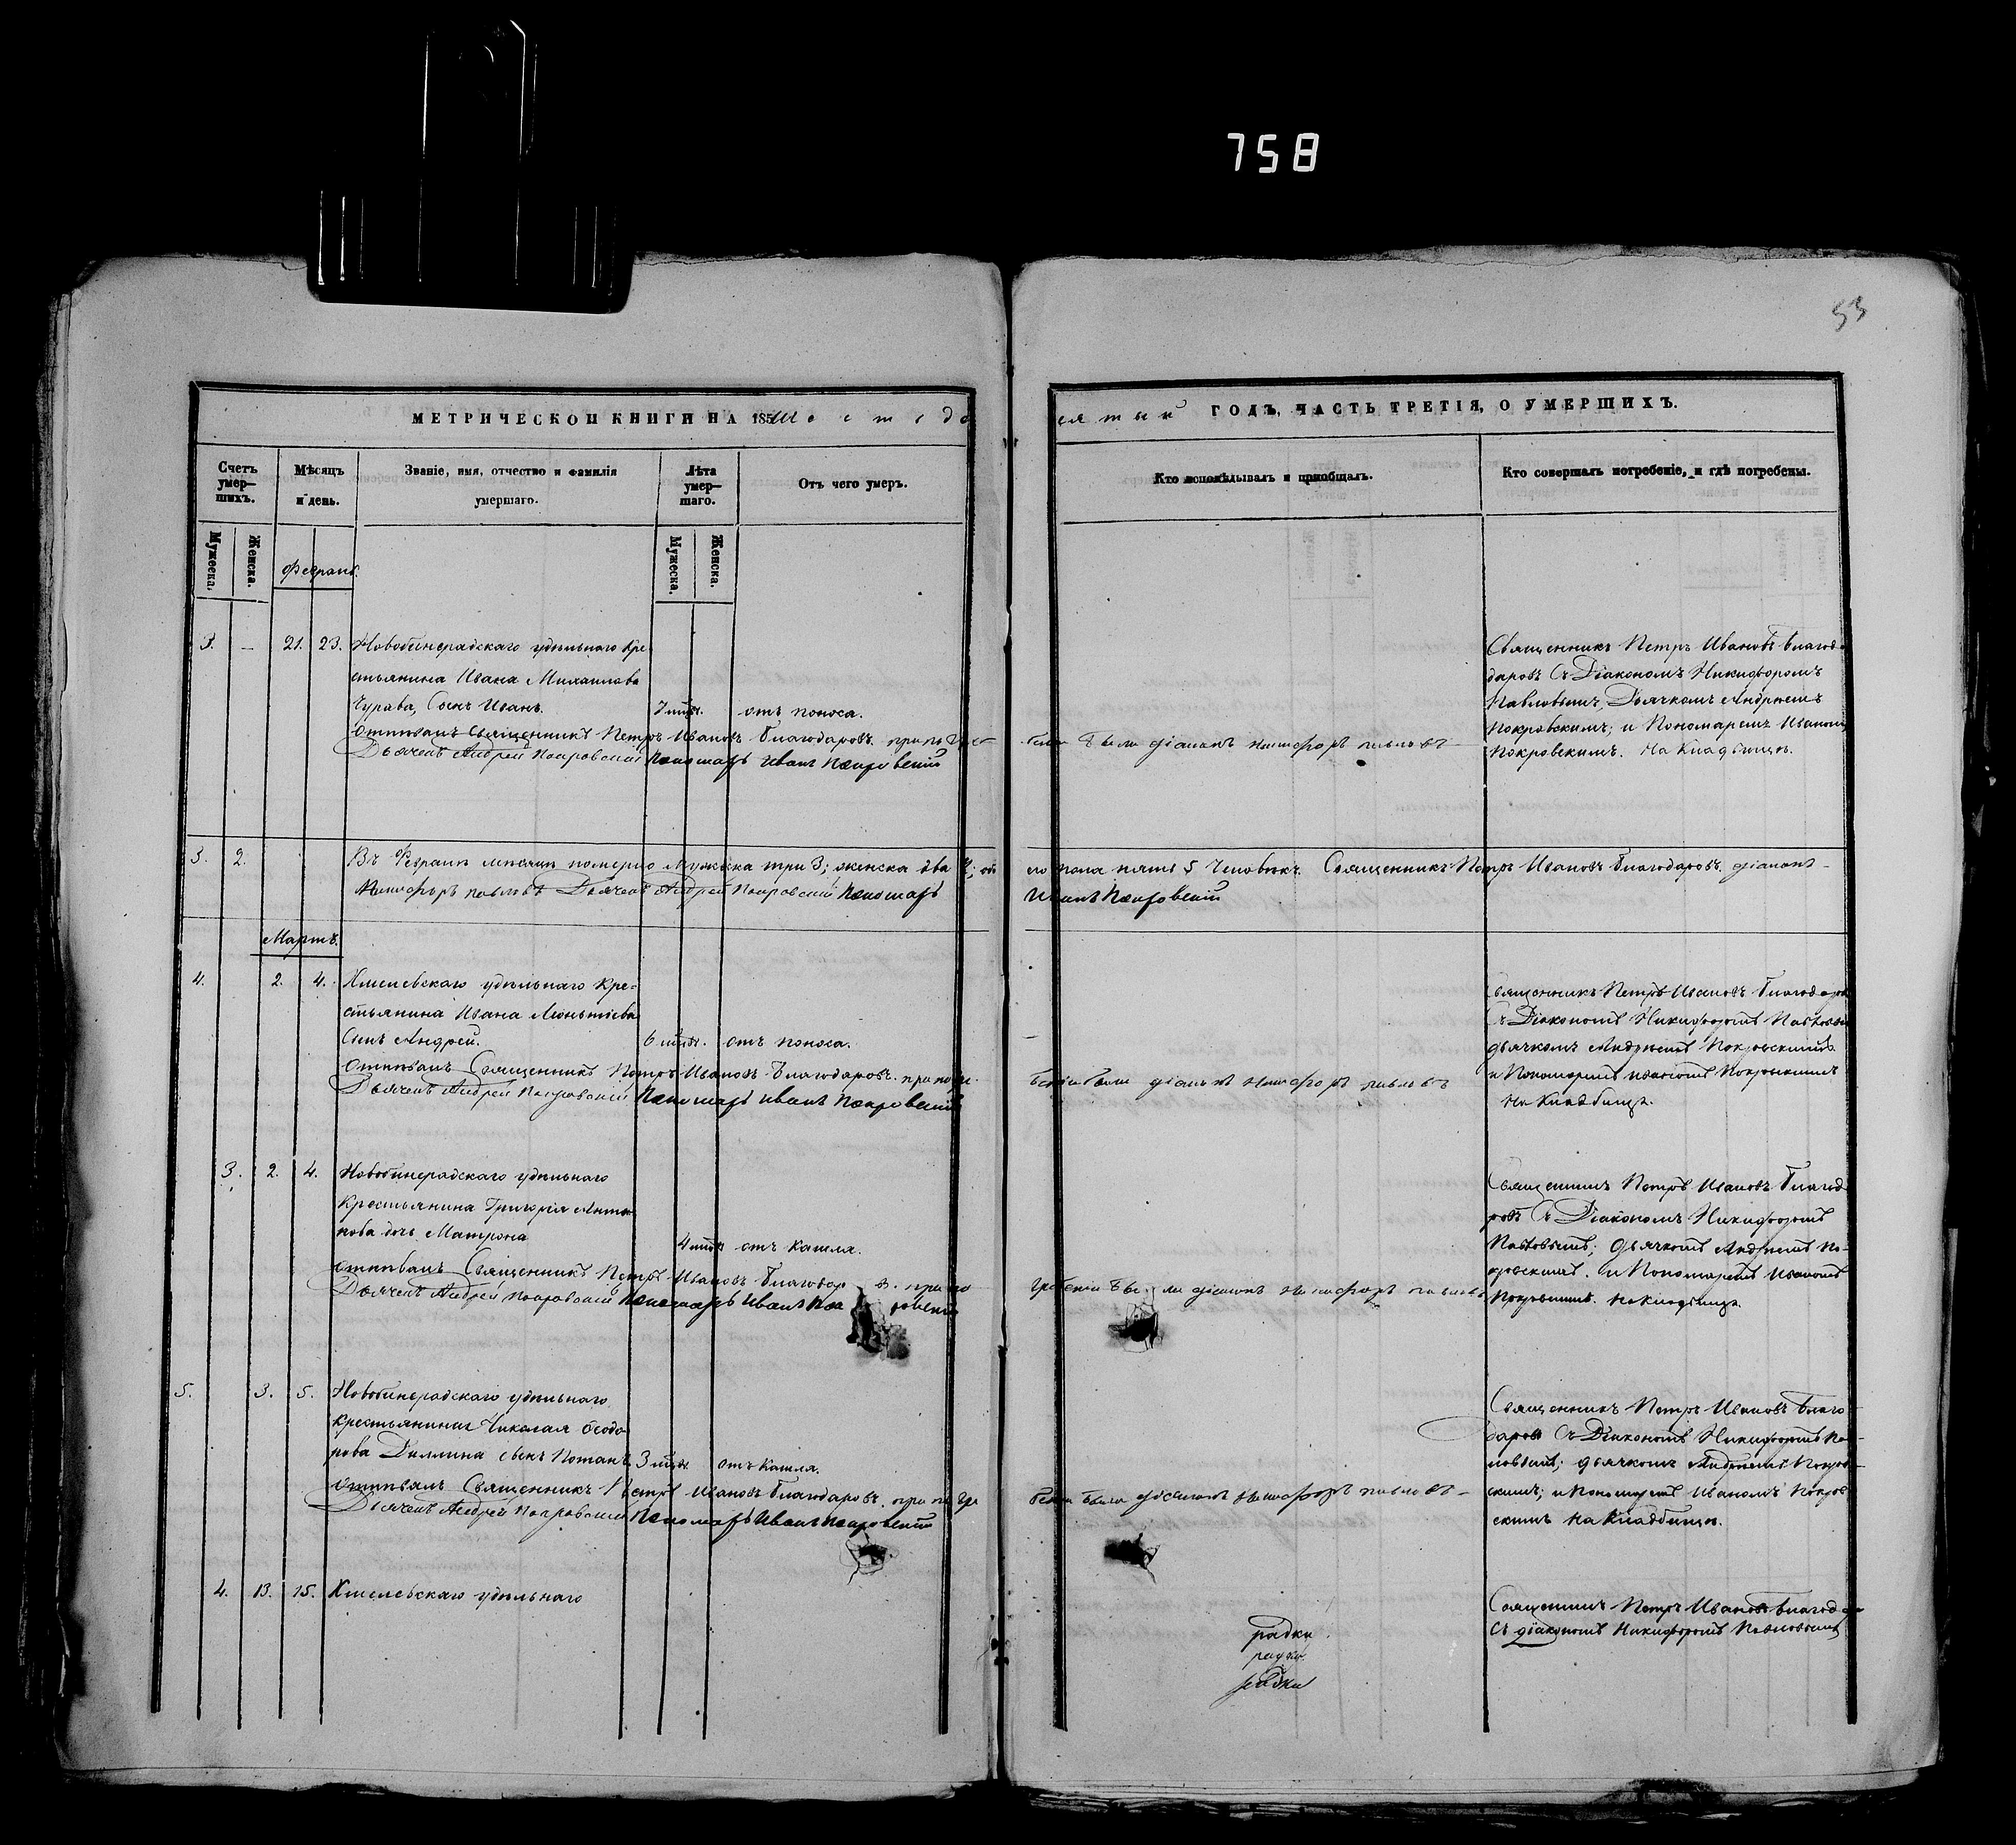 758
53
МЕТРИЧЕСКОЙ КНИГИ НА 185 Шестьде
сятый ГОДЪ, ЧАСТЬ ТРЕТІЯ, О УМЕРШИХЪ.
Счетъ умер–шихъ.
Мѣсяцъ и день.
Званіе, имя, отчество и фамилія умершаго.
Лѣта умер–шаго.
Отъ чего умеръ.
Кто исповѣдывалъ и пріобщалъ.
Кто совершалъ погребеніе, и гдѣ погребены.
Мужеска. Женска.
Мужеска. Женска.
3. — 21. 23. Новобинарадскаго удѣльнаго кре
стьянина Ивана Михаилова
Сынъ Иванъ. отъ поноса.
отпѣвалъ Священникъ Петръ Ивановъ Благодаровъ. при погре
Дьячекъ Андрей Покровскій Пономарь Иванъ Покровскій
были діаконъ Никифоръ Павловъ
Священникъ Петръ Ивановъ Благо
даровъ Съ Діакономъ Никифоромъ
Павловымъ, Дьячкомъ Андреемъ
Покровскимъ; и Пономаремъ Иваномъ
Покровскимъ. На Кладбищѣ.
3. 2. Въ Февралѣ мѣсяцѣ померло Мужеска три 3; женска два 2; обо
его пола пять 5 Человѣкъ. Священникъ Петръ Ивановъ Благодаровъ. діаконъ
Никифоръ Павловъ Дьячекъ Андрей Покровскій Пономарь
Иванъ Покровскій
Мартъ.
4. 2. 4. Хмелевскаго удѣльнаго Кре=
стьянина Ивана
Сынъ Андрей. отъ поноса.
Отпѣвалъ Священникъ Петръ Ивановъ Благодаровъ. при погре
Дьячекъ Андрей Покровскій Пономарь Иванъ Покровскій
беніи были діаконъ Никифоръ Павловъ
Священникъ Петръ Ивановъ Благодаровъ
Съ Діакономъ Никифоромъ Павловымъ
дьячкомъ Андреемъ Покровскимъ
и Пономаремъ Иваномъ Покровскимъ
На Кладбищѣ.
3. 2. 4. Новобинарадскаго удѣльнаго
Крестьянина Григорія Анто
нова дочь Матрона
отъ кашля.
отпѣвалъ Священникъ Петръ Ивановъ
Дьячекъ Андрей Покровскій Пономарь Иванъ Пок ровскій
гребеніи бы ли діаконъ Никифоръ Павловъ
Священникъ Петръ Ивановъ Благода
ровъ Съ Діакономъ Никифоромъ
Павловымъ; Дьячкомъ Андреемъ По=
кровскимъ. и Пономаремъ Иваномъ
Покровскимъ. На Кладбищѣ.
5. 3. 5. Новобинарадскаго удѣльнаго
крестьянина Николая Ѳеодо
рова сынъ
отъ кашля.
отпѣвалъ Священникъ Петръ Ивановъ Благодаровъ. при погре
Дьячекъ Андрей Покровскій Пономарь Иванъ Покровскій
беніи были діаконъ Никифоръ Павловъ
Священникъ Петръ Ивановъ Благо
даровъ Съ Діакономъ Никифоромъ Па
вловымъ; дьячкомъ Андреемъ Покров
скимъ; и Пономаремъ Иваномъ Покров
скимъ На Кладбищѣ.
4. 13. 15. Хмелевскаго удѣльнаго
Священникъ Петръ Ивановъ Благодаро
Съ діакономъ Никифоромъ Павловымъ